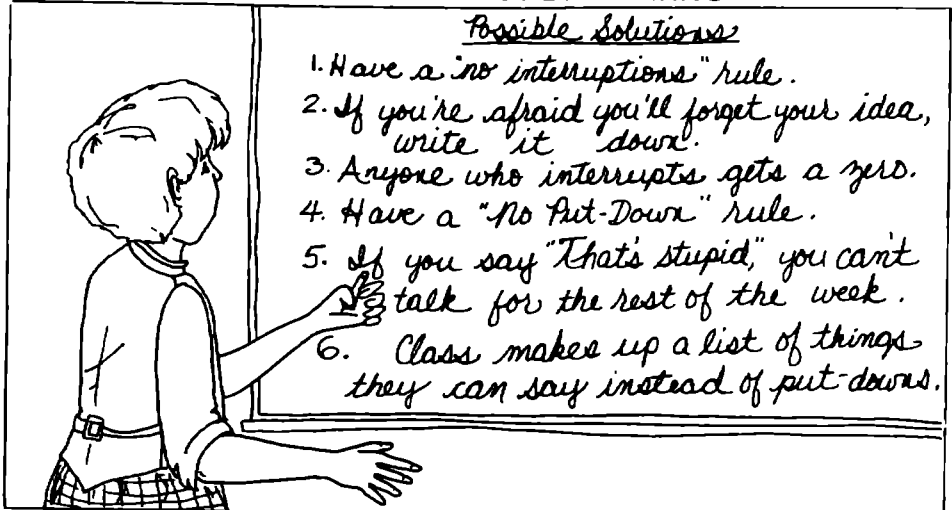 Possible Solutions
1. Have a "no interruptions" rule.
2. If you're afraid you'll forget your idea,
write it down.
3. Anyone who interrupts gets a zero.
4. Have a "No Put-Down" rule.
5. If you say "That's stupid," you can't
talk for the rest of the week.
6. Class makes up a list of things
they can say instead of put-downs.